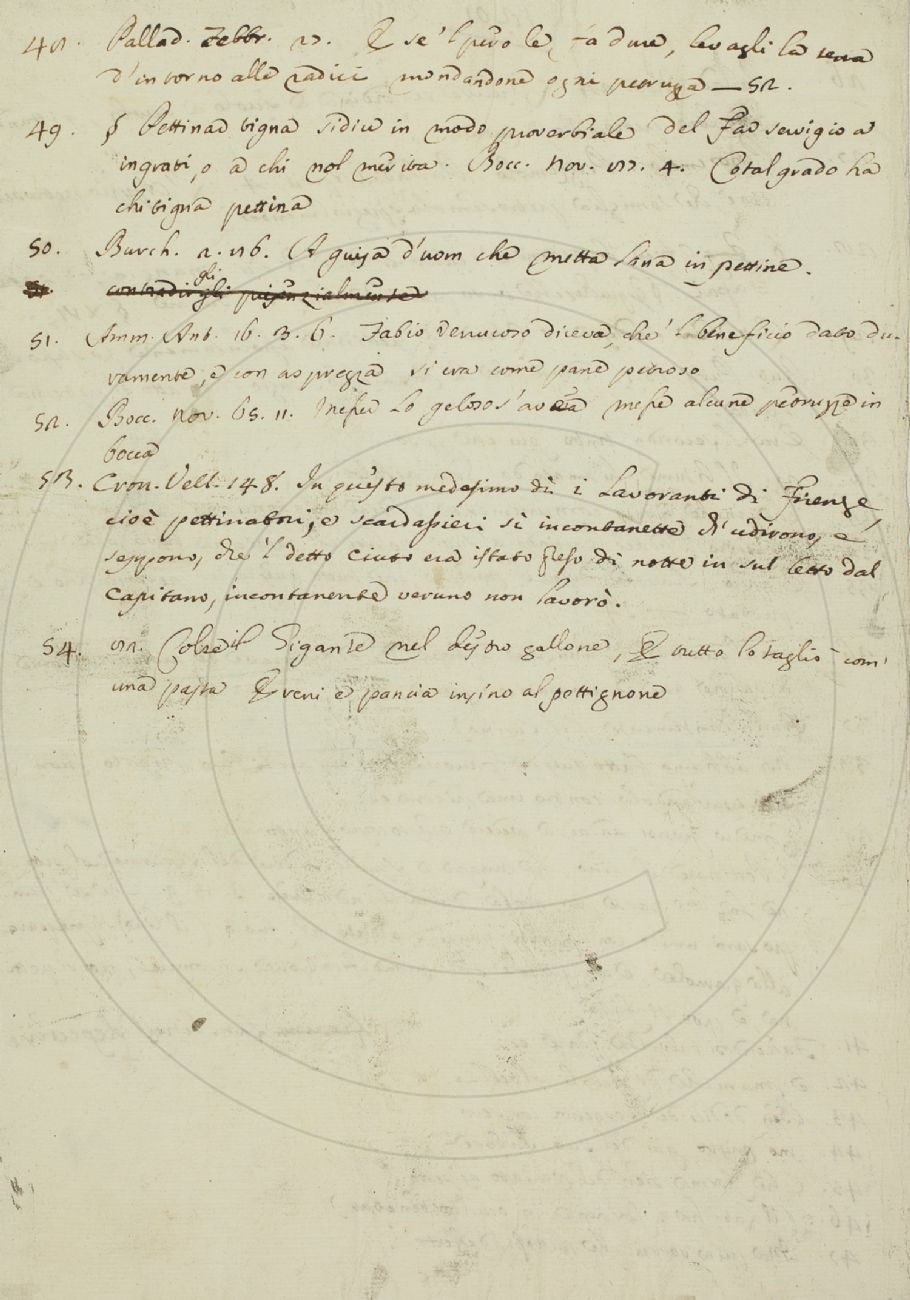 48. Pallad. Febbr. 25. E se 'l pero le fa dure, levagli la terra
d'intorno alle radici mondandone ogni petruzza — 52.
49. § Pettinar vigna si dice in modo proverbiale del Far servigio a
ingrati, o a chi nol merita. Bocc. nov. 4. Cotal grado ha
chi tigna pettina
50. Burch. A guisa d'uom che metta lana in pettine.
gli
51. Amm. Ant. 16. 3. 6. Fabio Verrucoso diceva, che 'l beneficio dato du-
ramente, e con asprezza si era come pane petroso
52. Bocc. nov. 65. 11. lo geloso s'avea messe alcune petruzze in
bocca
53. Cron. Vell. 148. In questo medesimo dì i Lavoranti di Firenze
cioè pettinatori, e scardassieri sì incontanette ch' udirono, e
seppono, che 'l detto Ciuto era istato preso di notte in sul letto dal
Capitano, incontanente veruno non lavorò.
54. Colse il Gigante nel destro gallone, E tutto lo tagliò com'
una pasta E reni e pancia insino al pettignone